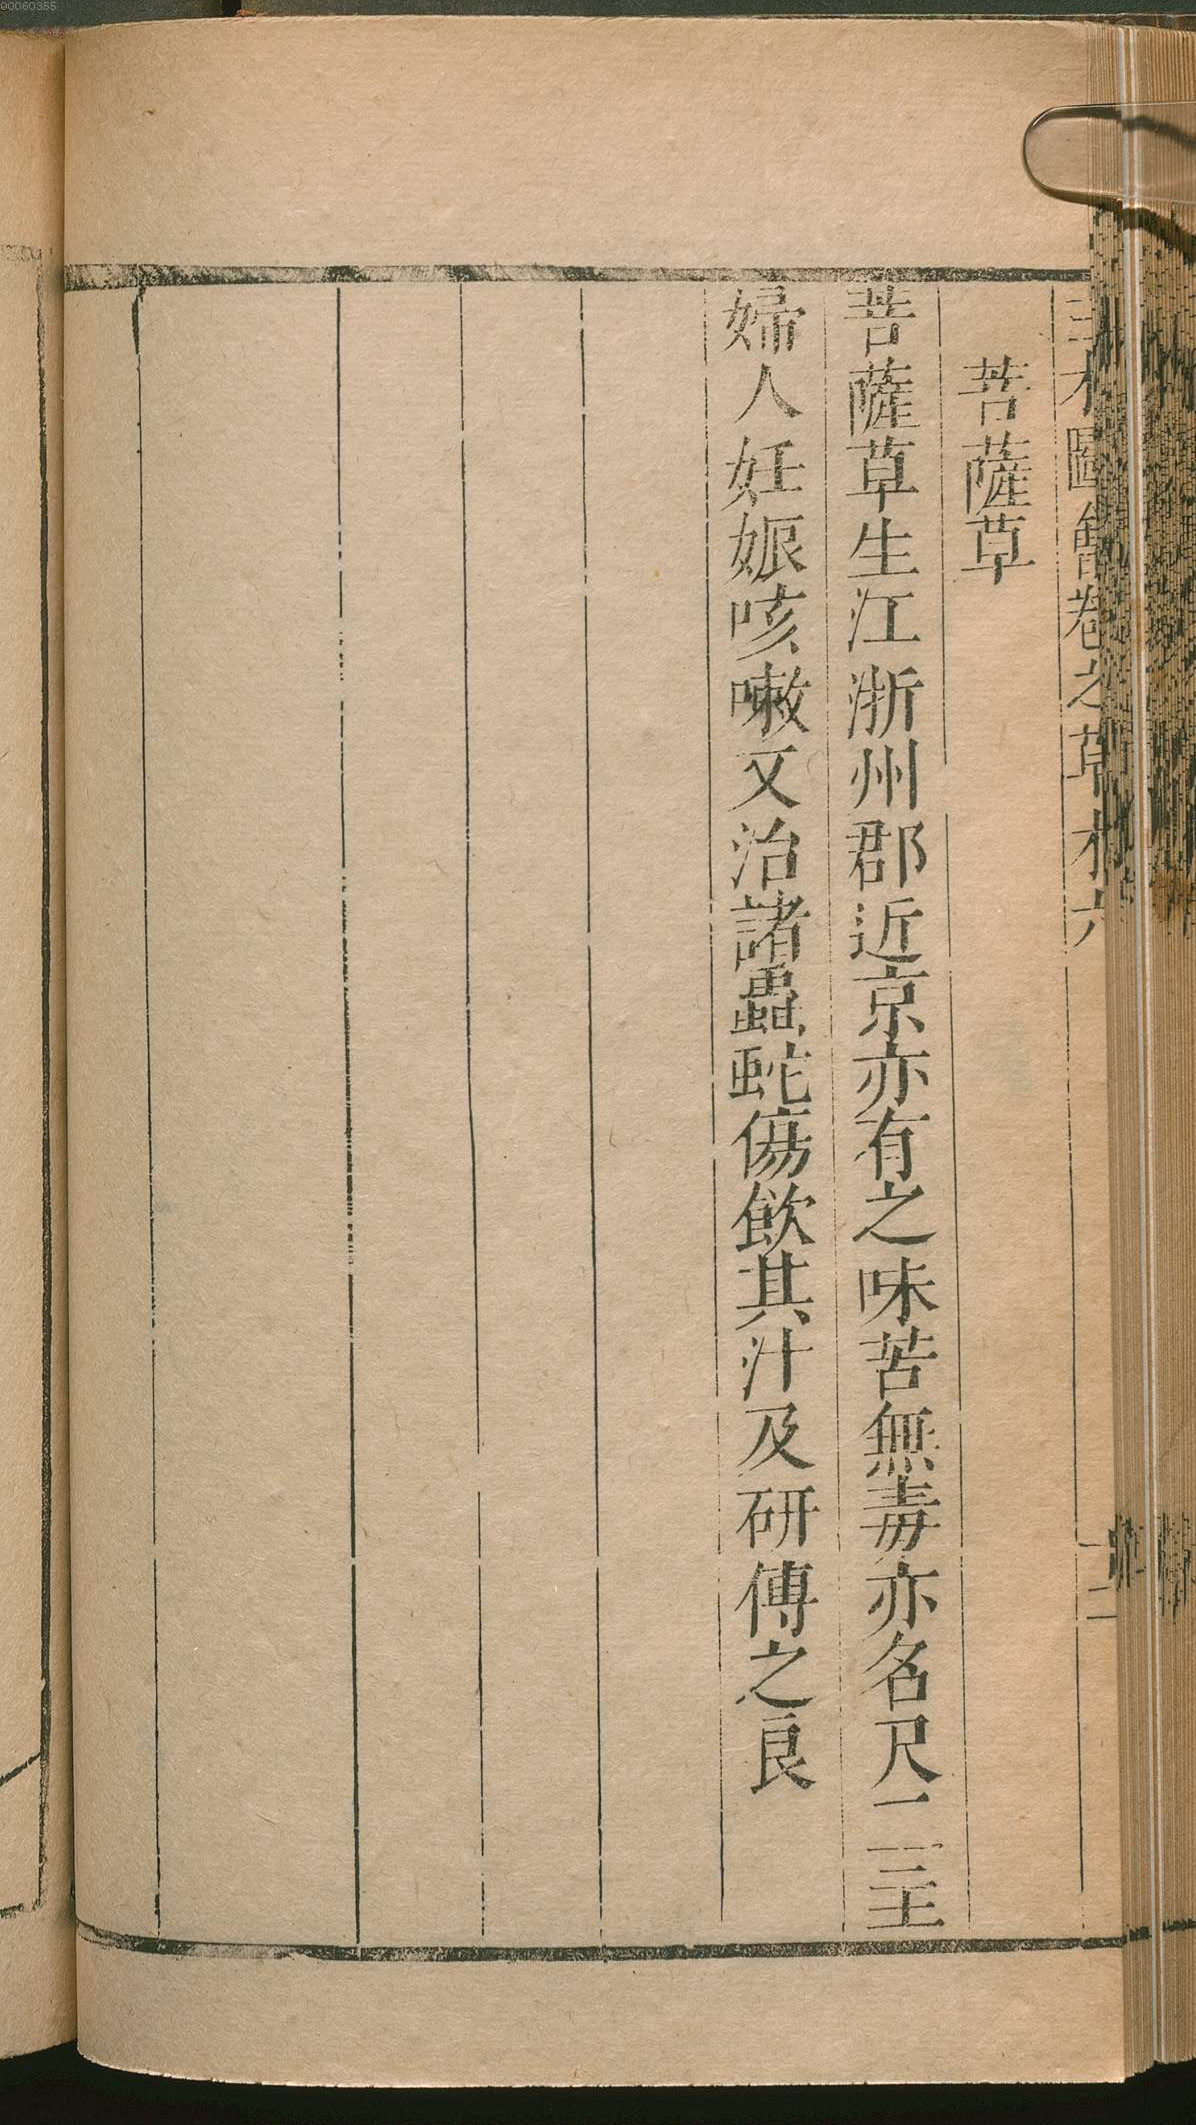 00060355
三才圖會卷之草木六
十二
菩薩草
菩薩草生江浙州郡近京亦有之味苦無毒亦名尺二主
婦人妊娠咳嗽又治諸蟲蛇傷飲其汁及研傅之良